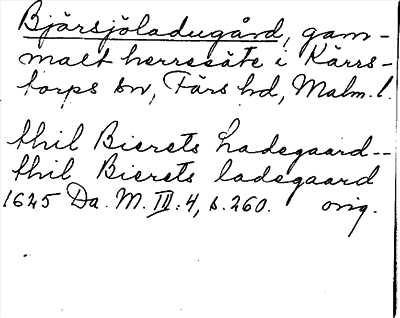 Bjärsjöladugård, gam-
malt herresäte i Kärrs-
torps sn, Färs hd, Malm. l.
thil Bierets hadegaard--
thil Bierets ladegaard
1625 Da. M. III:4, s. 260. orig.